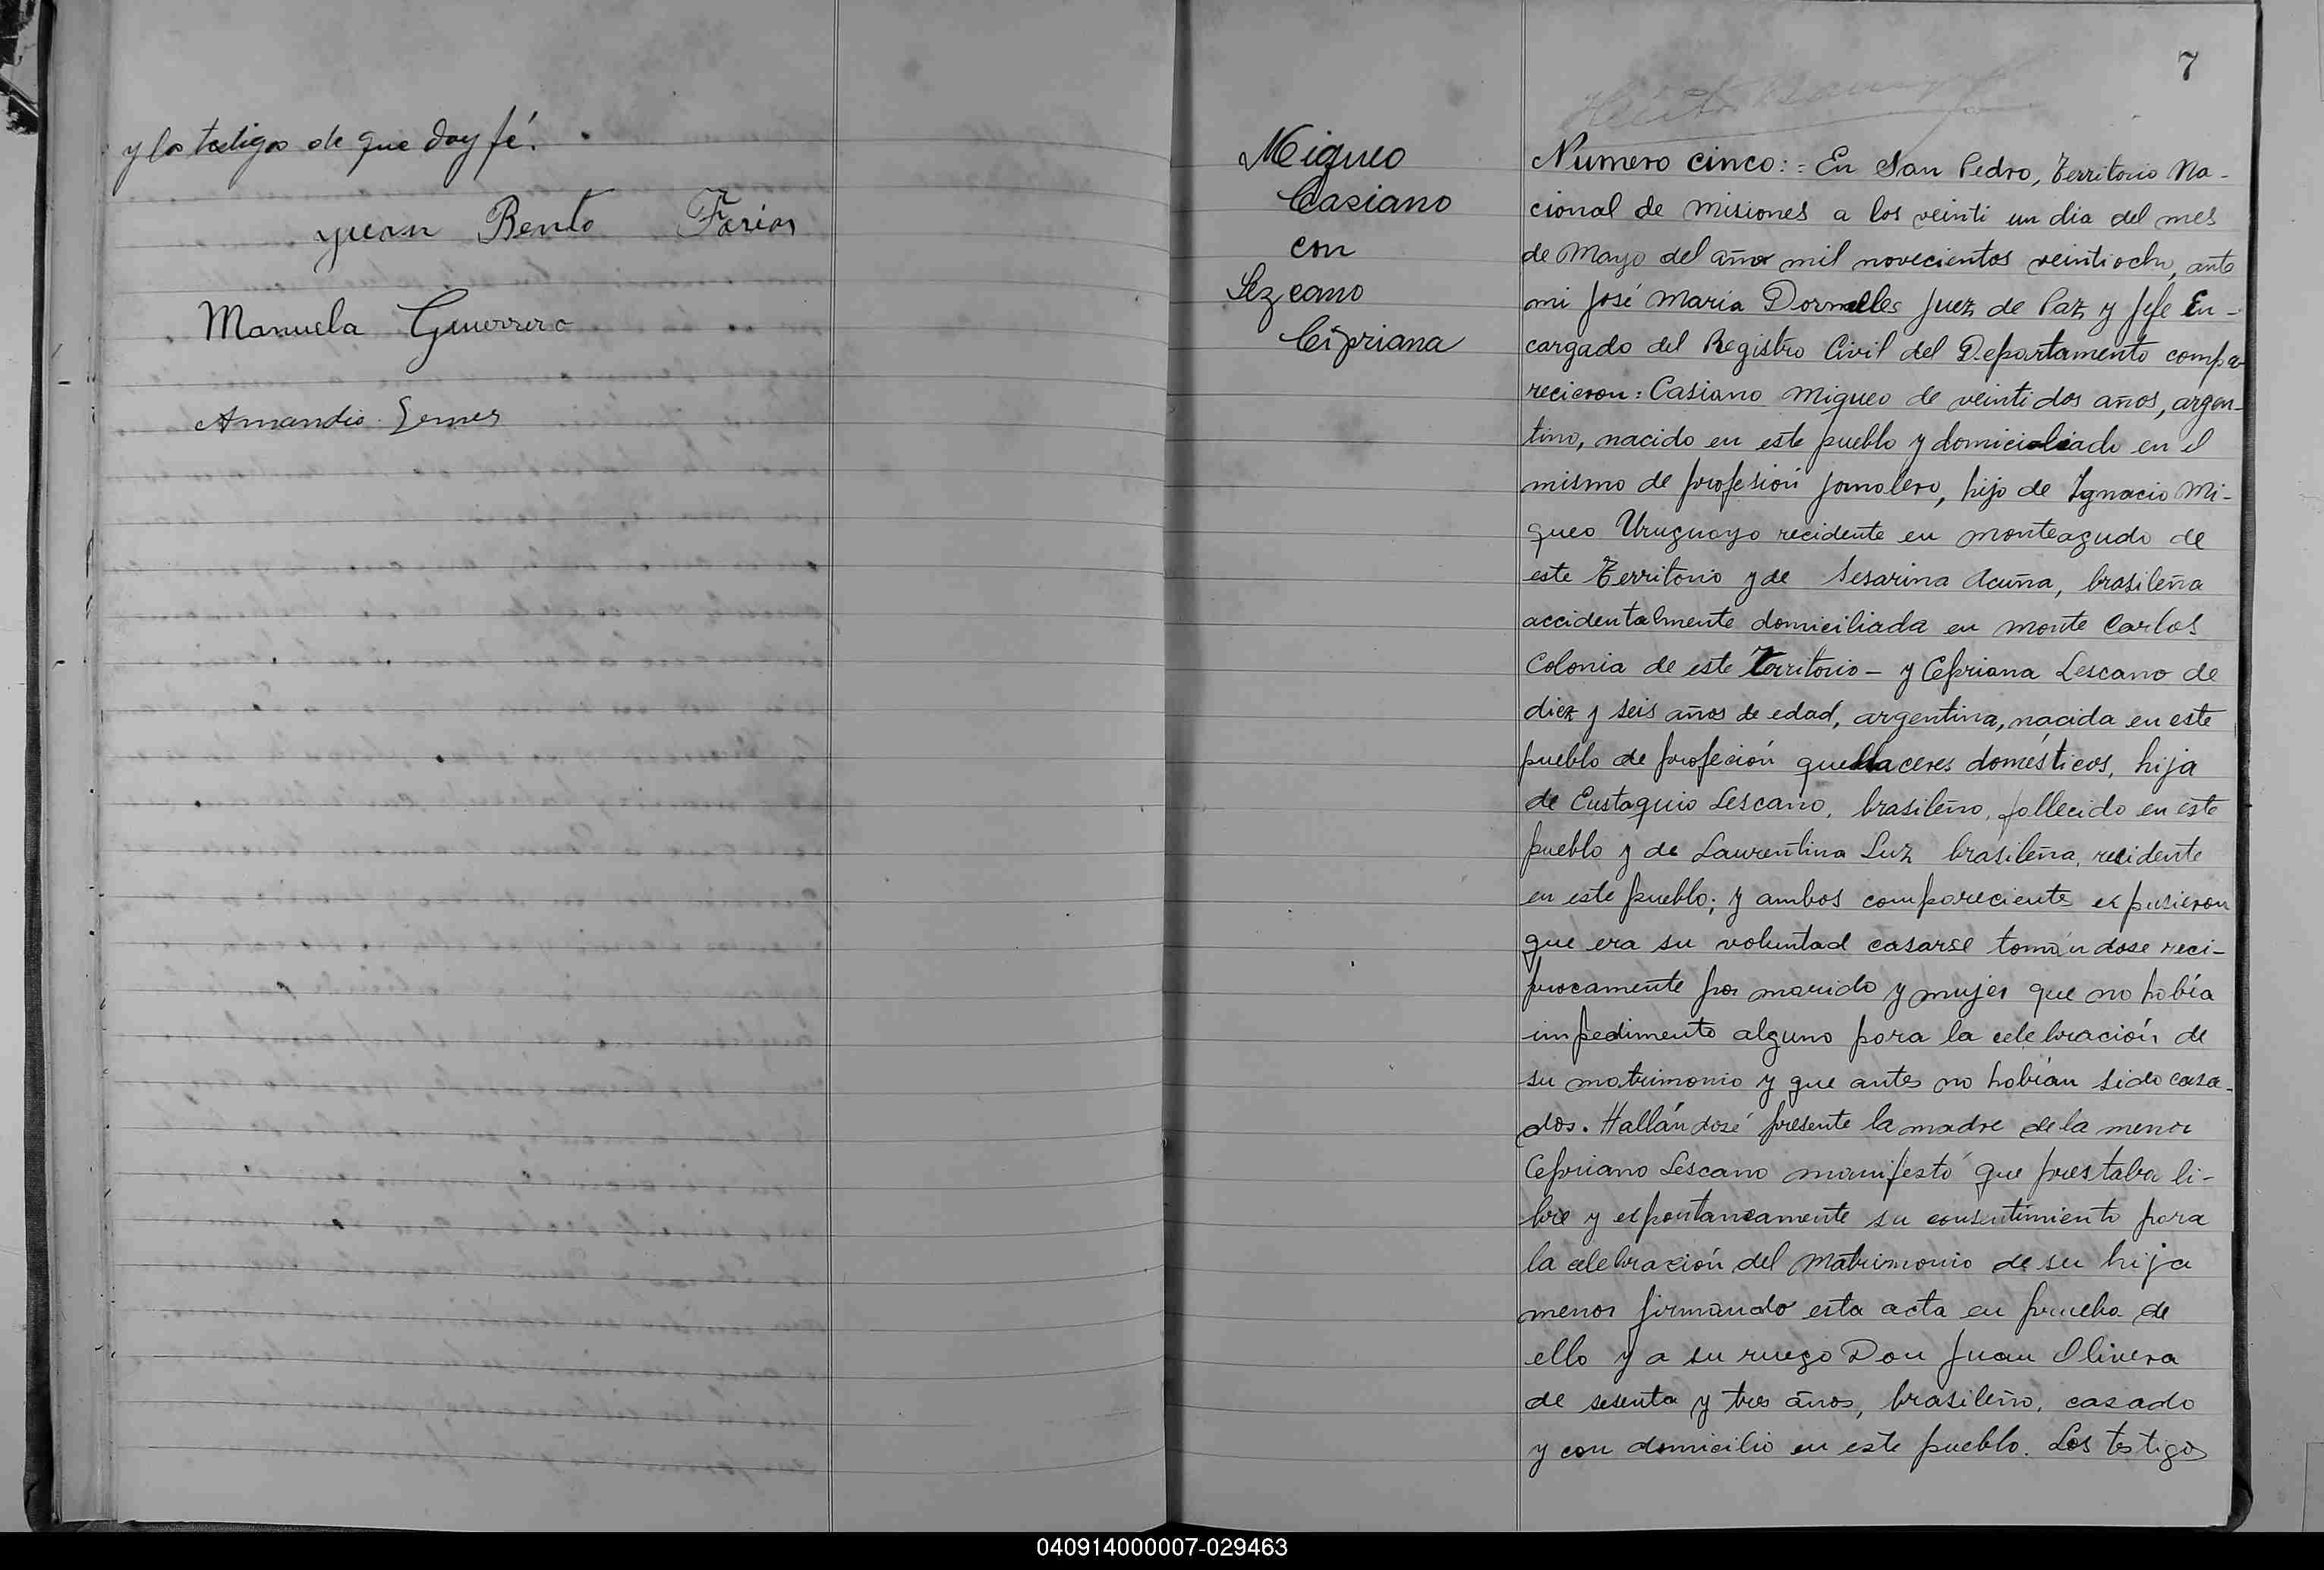 y los testigos de que doy fé.
Juan Bento Farias
Manuela Guerrero
Amandio Lemes
7
Migueo
Casiano
con
Lezcano
Cipriana
Numero cinco: = En San Pedro, Territorio Na-
cional de Misiones a los veinti un dia del mes
de Mayo del año mil novecientos veintiocho, ante
mi José Maria Dornelles Juez de Paz y Jefe En-
cargado del Registro Civil del Departamento compa
recieron: Casiano Migueo de veintidos años, argen-
tino, nacido en este pueblo y domiciliado en el
mismo de profesión jornalero, hijo de Ignacio Mi-
gueo Uruguayo recidente en monteagudo de
este Territorio y de Sesarina Acuña, brasileña
accidentalmente domiciliada en monte Carlos
Colonia de este Territorio - y Cepriana Lescano de
diez y seis años de edad, argentina, nacida en este
pueblo de profeción quehaceres domésticos, hija
de Eustaquio Lescano, brasileño, fallecido en este
pueblo y de Laurentina Luz brasileña, recidente
en este pueblo; y ambos comparecientes expusieron
que era su voluntad casarse tomándose reci-
procamente por marido y mujer que no había
impedimento alguno para la celebración de
su matrimonio y que antes no habían sido casa-
dos. Hallándosé presente la madre de la menor
Cepriano Lescano manifestó que prestaba li-
bre y expontaneamente su consentimiento para
la celebrasión del Matrimonio de su hija
menor firmando esta acta en prueba de
ello y a su ruego Don Juan Olivera
de sesenta y tres años, brasileño, casado
y con domicilio en este pueblo. Los testigos
040914000007-029463